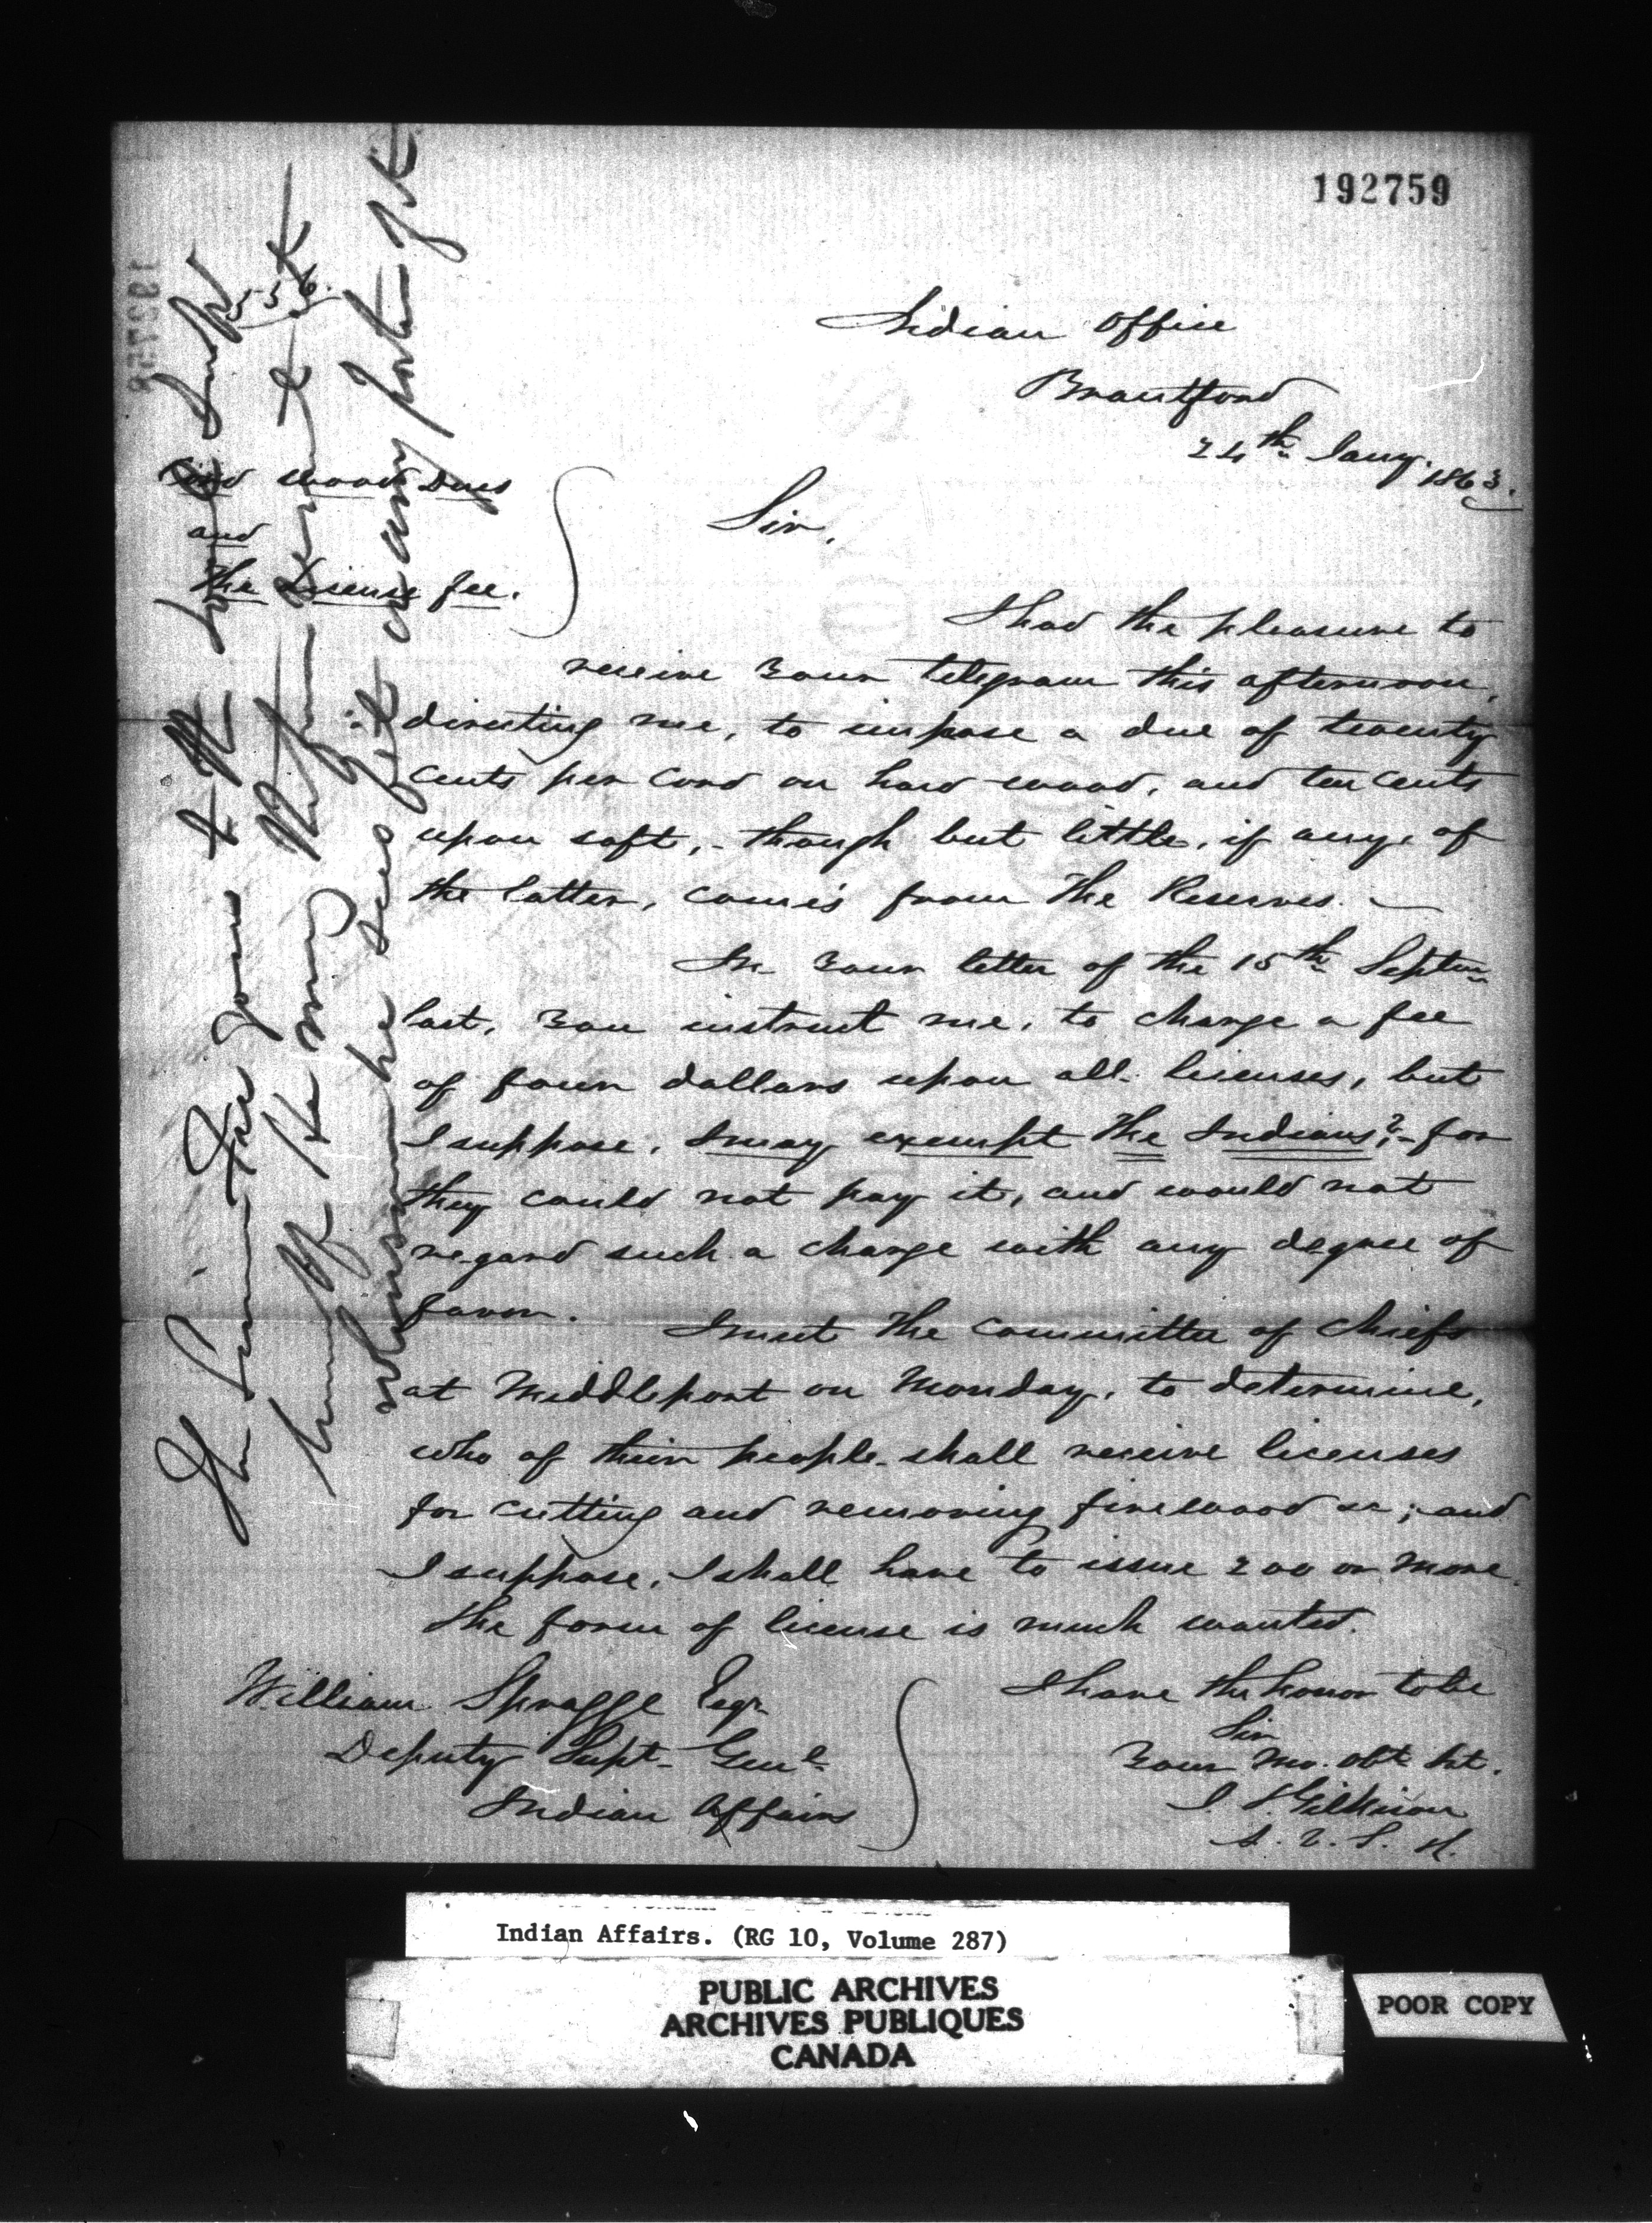 192759
Indian Office
Brantford
24th Jany. 1863.
536.
Cord wood Dues
and
The License fee.
Sir,
I had the pleasure to
receive Your telegram this afternoon,
directing me, to impose a due of twenty
cents per cord on hard wood, and ten cents
upon soft, - though but little, if any, of
the latter, comes from The Reserves. —
In Your letter of the 15th Septem
last, You instruct me, to charge a fee
of four dollars upon all licenses, but
I suppose, I may exempt The Indians? - for
they could not pay it, and would not
regard such a charge with any degree of
favor.
I meet The Committee of Chiefs
at Middleport on Monday, to determine,
who of their people shall receive licenses
for cutting and removing firewood &c; and
I suppose, I shall have to issue 200 or more.
The form of license is much wanted.
I have the honor to be
Sir
Your Mo. Obt. St.
J. T. Gilkison
William Spragge Esqr.
Deputy Supt. Genl.
Indian Affairs
The License Fee
of the may
whensoever he sees fit any portion of it
Indian Affairs. (RG 10, Volume 287)
PUBLIC ARCHIVES
ARCHIVES PUBLIQUES
CANADA
POOR COPY